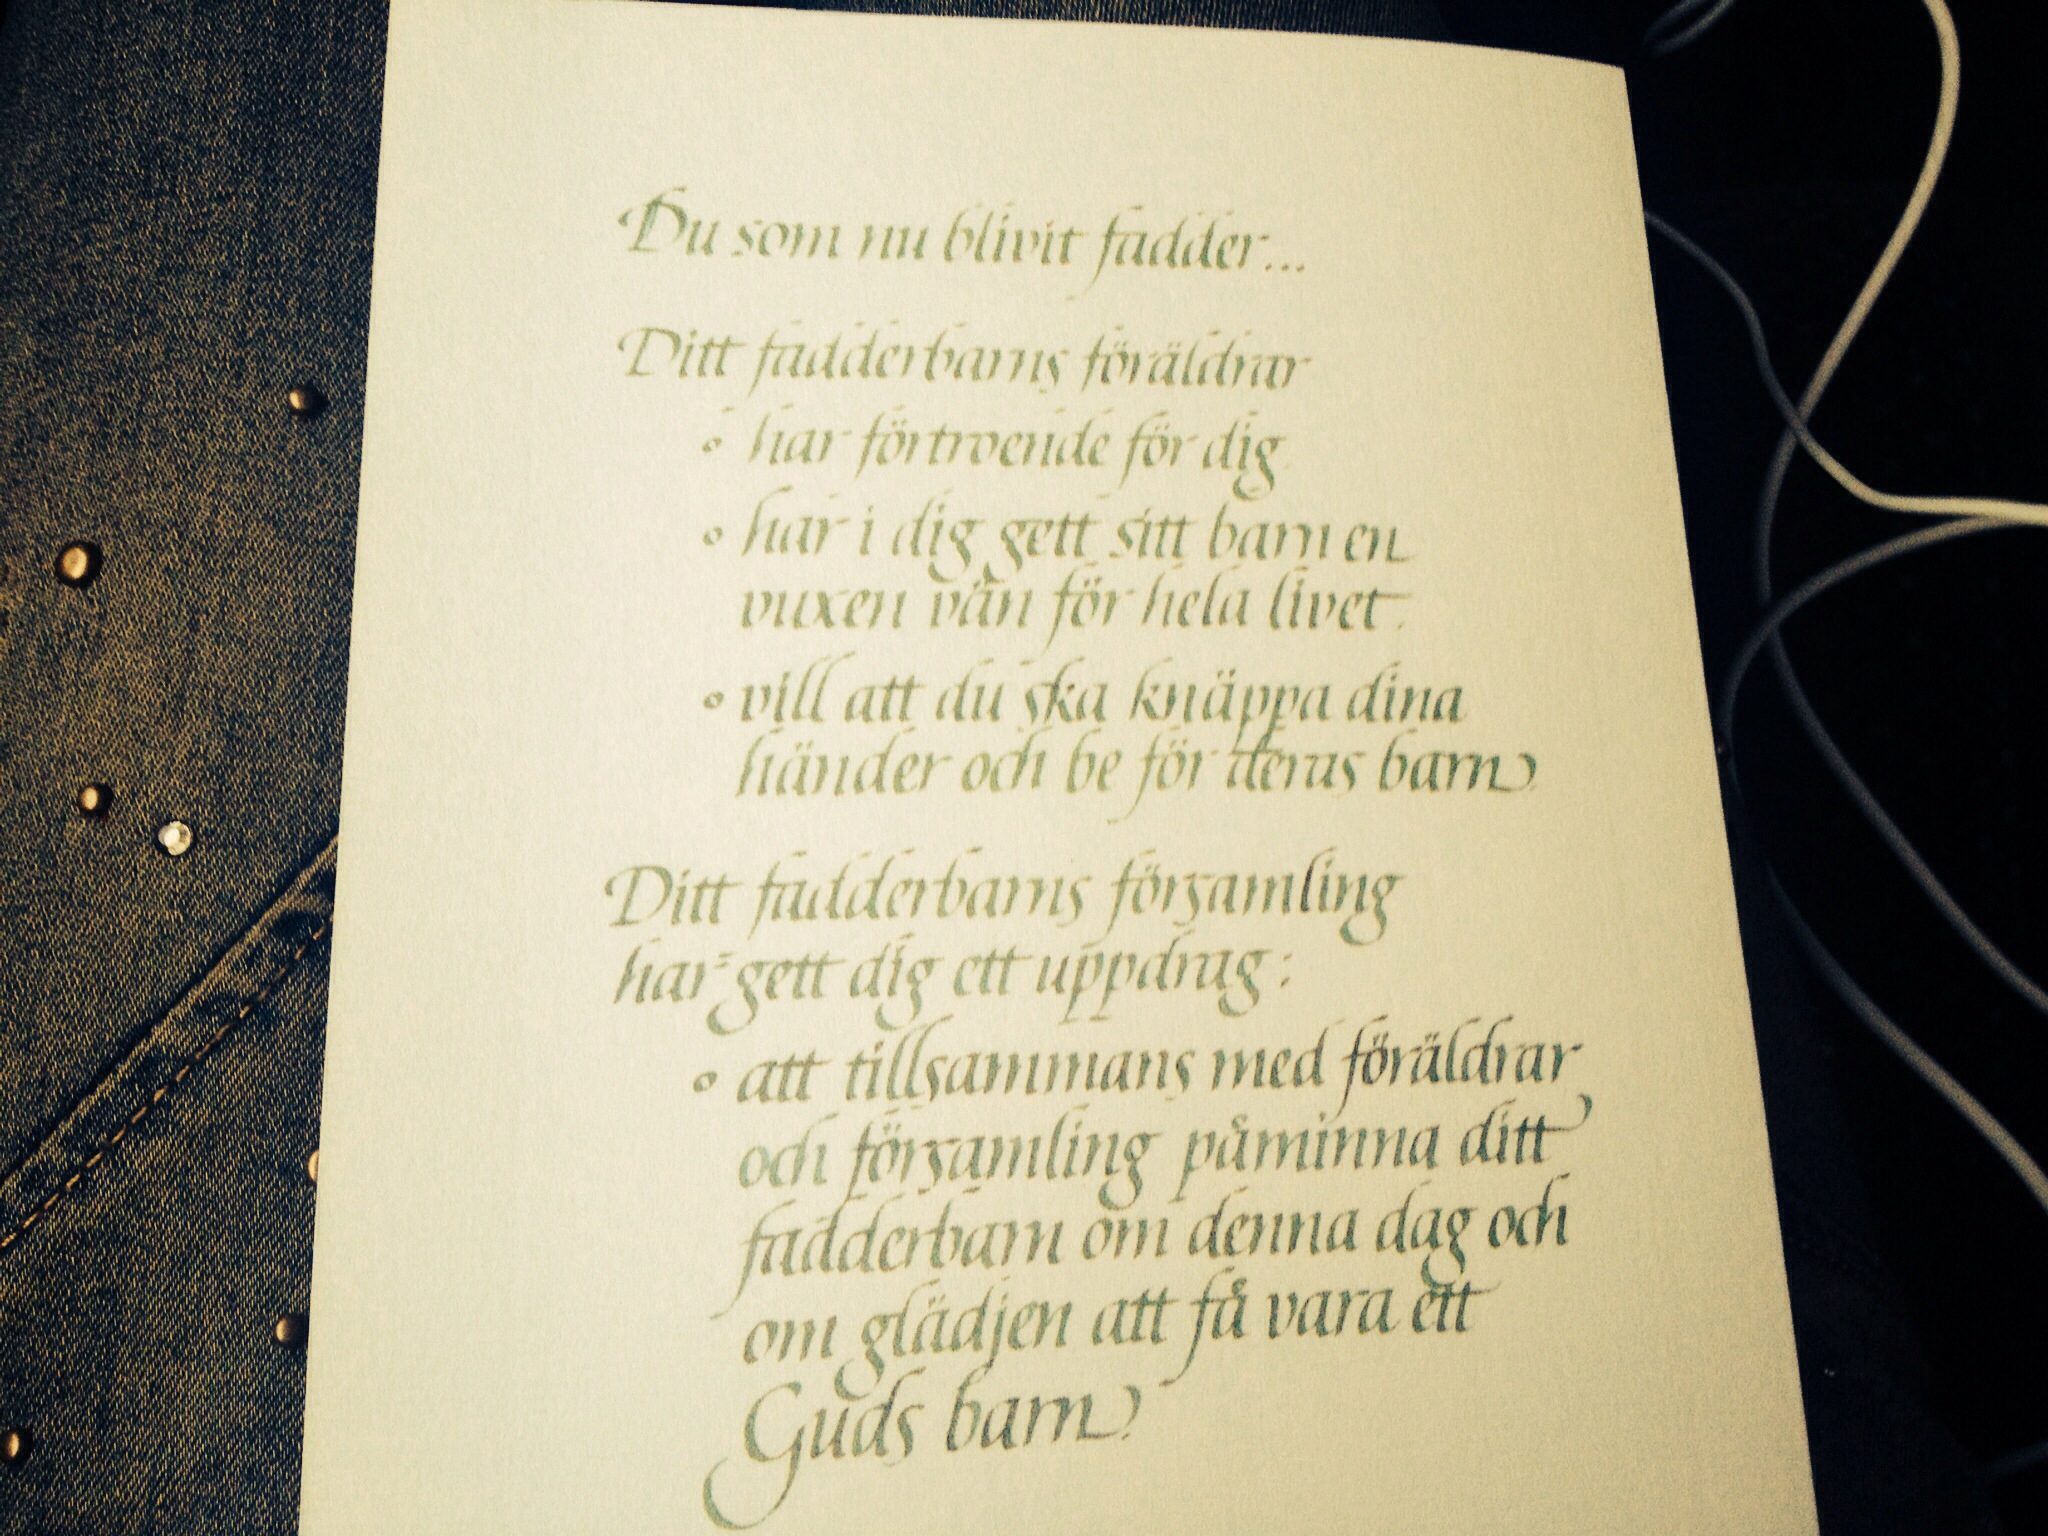 Du som nu blivit fadder...
Ditt fadderbarns föräldrar
• har förtroende för dig.
• har i dig gett sitt barn en
vuxen vän för hela livet.
• vill att du ska knäppa dina
händer och be för deras barn.
Ditt fadderbarns församling
har gett dig ett uppdrag:
• att tillsammans med föräldrar
och församling påminna ditt
fadderbarn om denna dag och
om glädjen att få vara ett
Guds barn.